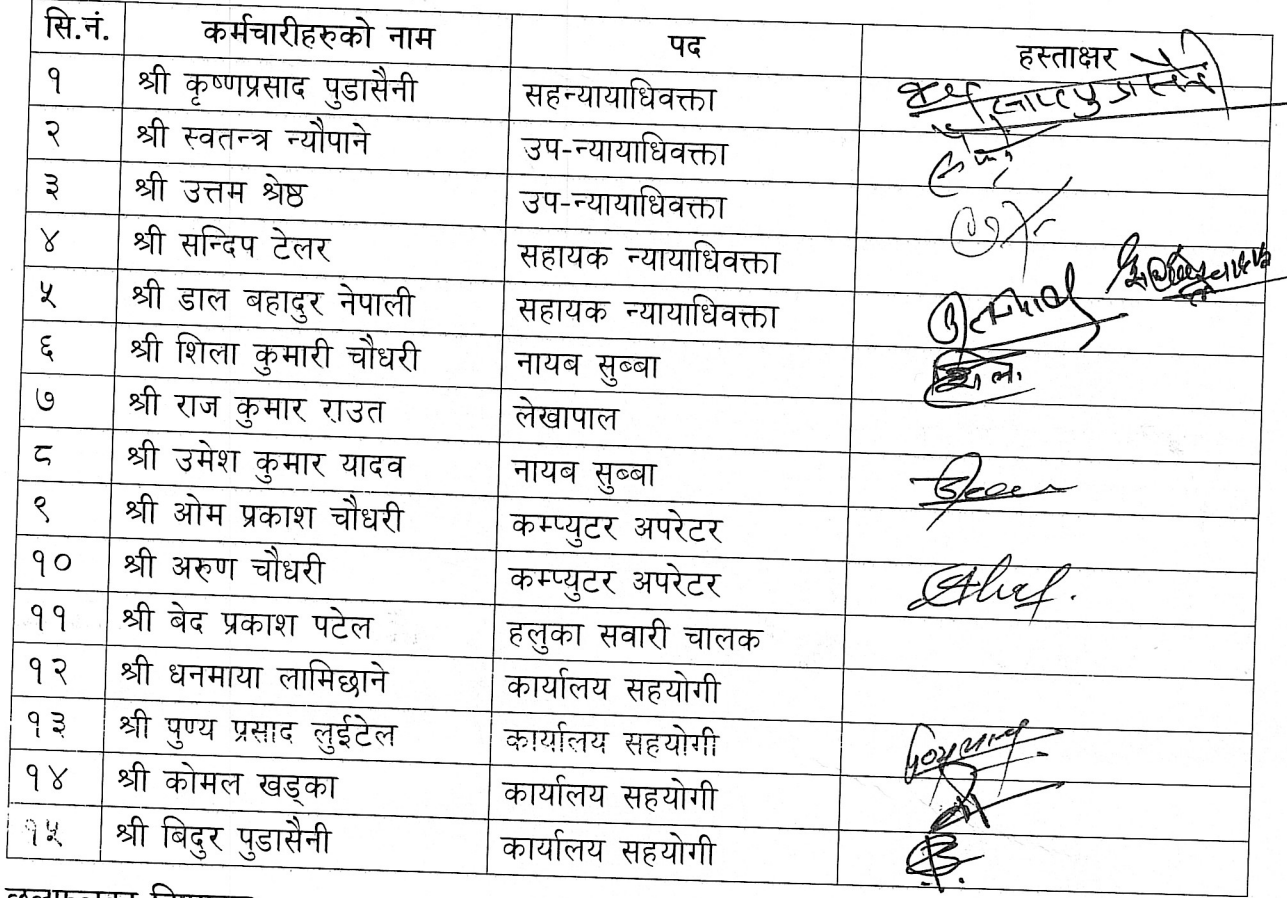 सि.नं. कर्मचारीहरुको नाम पद हस्ताक्षर
१ श्री कृष्णप्रसाद पुडासैनी सहन्यायाधिवक्ता
२ श्री स्वतन्त्र न्यौपाने उप-न्यायाधिवक्ता
३ श्री उत्तम श्रेष्ठ उप-न्यायाधिवक्ता
४ श्री सन्दिप टेलर सहायक न्यायाधिवक्ता
५ श्री डाल बहादुर नेपाली सहायक न्यायाधिवक्ता
६ श्री शिला कुमारी चौधरी नायब सुब्बा
७ श्री राज कुमार राउत लेखापाल
८ श्री उमेश कुमार यादव नायब सुब्बा
९ श्री ओम प्रकाश चौधरी कम्प्युटर अपरेटर
१० श्री अरुण चौधरी कम्प्युटर अपरेटर
११ श्री बेद प्रकाश पटेल हलुका सवारी चालक
१२ श्री धनमाया लामिछाने कार्यालय सहयोगी
१३ श्री पुण्य प्रसाद लुईटेल कार्यालय सहयोगी
१४ श्री कोमल खड्का कार्यालय सहयोगी
१५ श्री बिदुर पुडासैनी कार्यालय सहयोगी